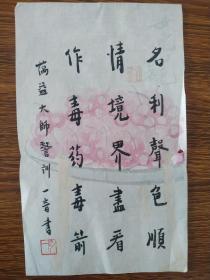 名利聲色順
情境界盡看
作毒药毒箭
蕅益大師警訓 一音書